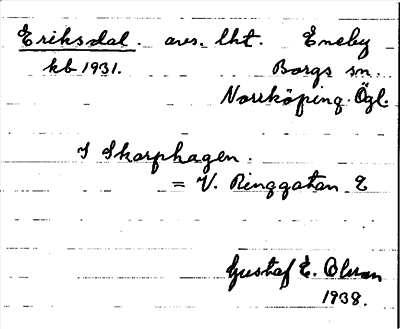 Eriksdal. avs. lht. Eneby
kb 1931. Borgs sn.
Norrköping. Ögl.
I Skarphagen.
= V. Ringgatan 2
Gustaf E. Olsson
1938.